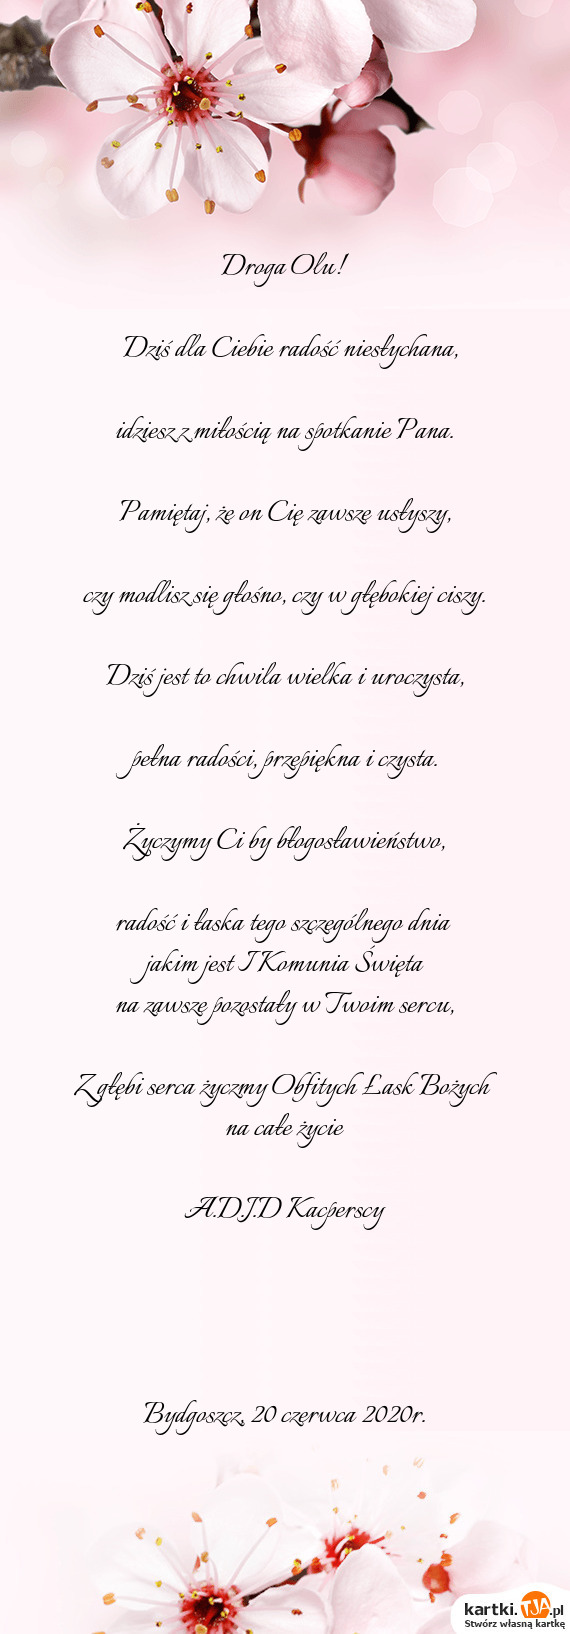 Droga Olu!
Dziś dla Ciebie radość niesłychana,
idziesz z miłością na spotkanie Pana.
Pamiętaj, że on Cię zawsze usłyszy,
czy modlisz się głośno, czy w głębokiej ciszy.
Dziś jest to chwila wielka i uroczysta,
pełna radości, przepiękna i czysta.
Życzymy Ci by błogosławieństwo,
radość i łaska tego szczególnego dnia
jakim jest I Komunia Święta
na zawsze pozostały w Twoim sercu,
Z głębi serca życzmy Obfitych Łask Bożych
na całe życie
A.D.J.D Kacperscy
Bydgoszcz, 20 czerwca 2020r.
kartki.TJA.pl
Stwórz własną kartkę